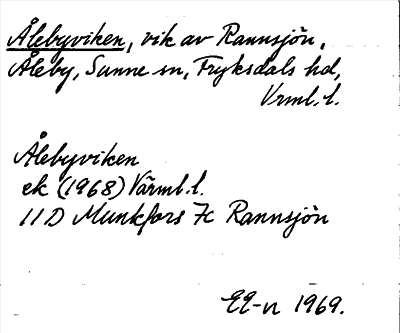 Ålebyviken, vik av Rannsjön,
Åleby, Sunne sn, Fryksdals hd,
Vrml. l.
Ålebyviken
ek (1968) Värml. l.
11 D Munkfors 7c Rannsjön
EE-n 1969.